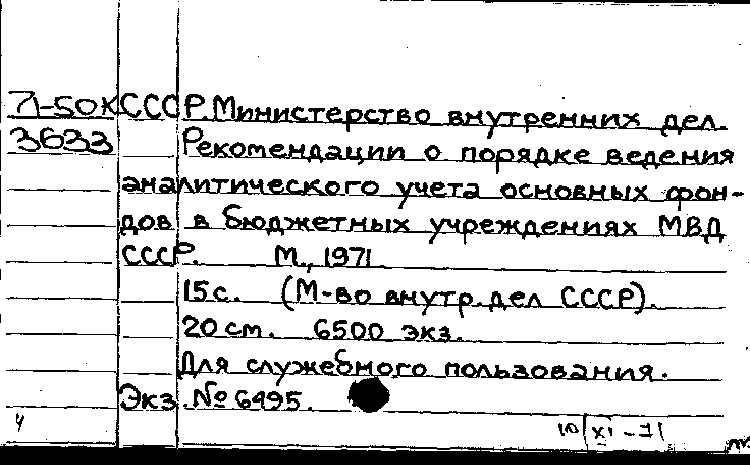 71-50К СССР. Министерство внутренних дел.
3633 Рекомендации о порядке ведения
аналитического учета основных фон-
дов в бюджетных учреждениях МВД
СССР. М., 1971
15 с. (М-во внутр. дел СССР).
20 см. 6500 экз.
Для служебного пользования.
Экз. № 6495.
4 10/XI-71